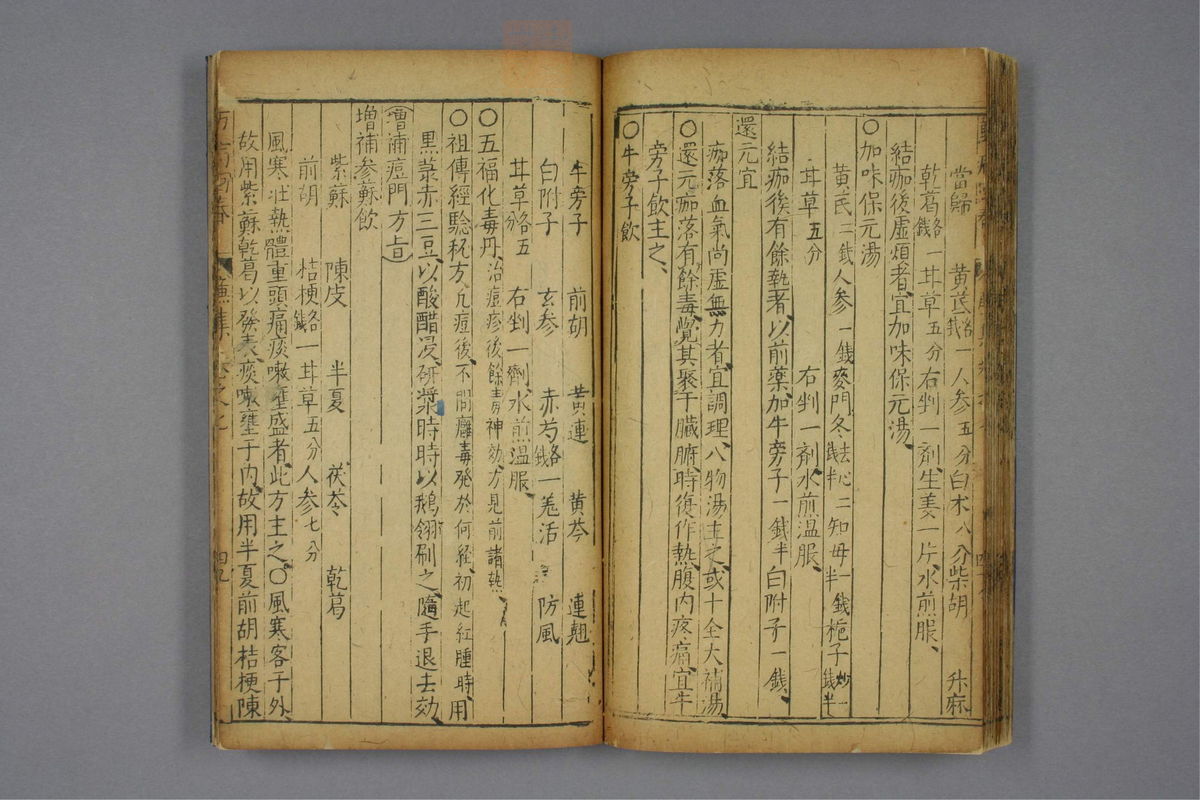 當歸 黃芪各一錢 人參五分 白朮八分 柴胡 升麻
乾葛各一錢 甘草五分 右剉一劑生姜一片、水煎服、
結痂後虛煩者、宜加味保元湯、
〇加味保元湯
黃芪二錢 人參一錢 麥門冬去心二錢半 知母一錢半 梔子炒一錢半
甘草五分 右剉一劑、水煎溫服、
結痂後有餘熱者、以前藥加牛旁子一錢半白附子一錢、
還元宜
痂落血氣尚虛無力者、宜調理、八物湯主之、或十全大補湯、
〇還元痂落有餘毒、覺其聚于臟腑、時復作熱、腹內疼痛、宜牛
旁子飲主之、
〇牛旁子飲
牛旁子 前胡 黃連 黃芩 連翹
白附子 玄參 赤芍各一錢 羗活 防風
甘草各五分 右剉一劑、水煎溫服、
〇五福化毒丹、治痘疹後餘毒神効、方見前諸熱、
〇祖傳經驗秘方、凢痘後、不問癰毒発於何經、初起紅腫時、用
黑菉赤三豆、以酸醋浸、研漿、時時以鵝翎刷之、隨手退去効、
增補痘門方上旨
增補參蘇飲
紫蘇 陳皮 半夏 茯苓 乾葛
前胡 桔梗各一錢 甘草五分 人參七分
風寒壯熱、體重頭痛、痰嗽壅盛者、此方主之、〇風寒客于外、
故用紫蘇乾葛以發表、痰嗽壅于內、故用半夏前胡桔梗陳